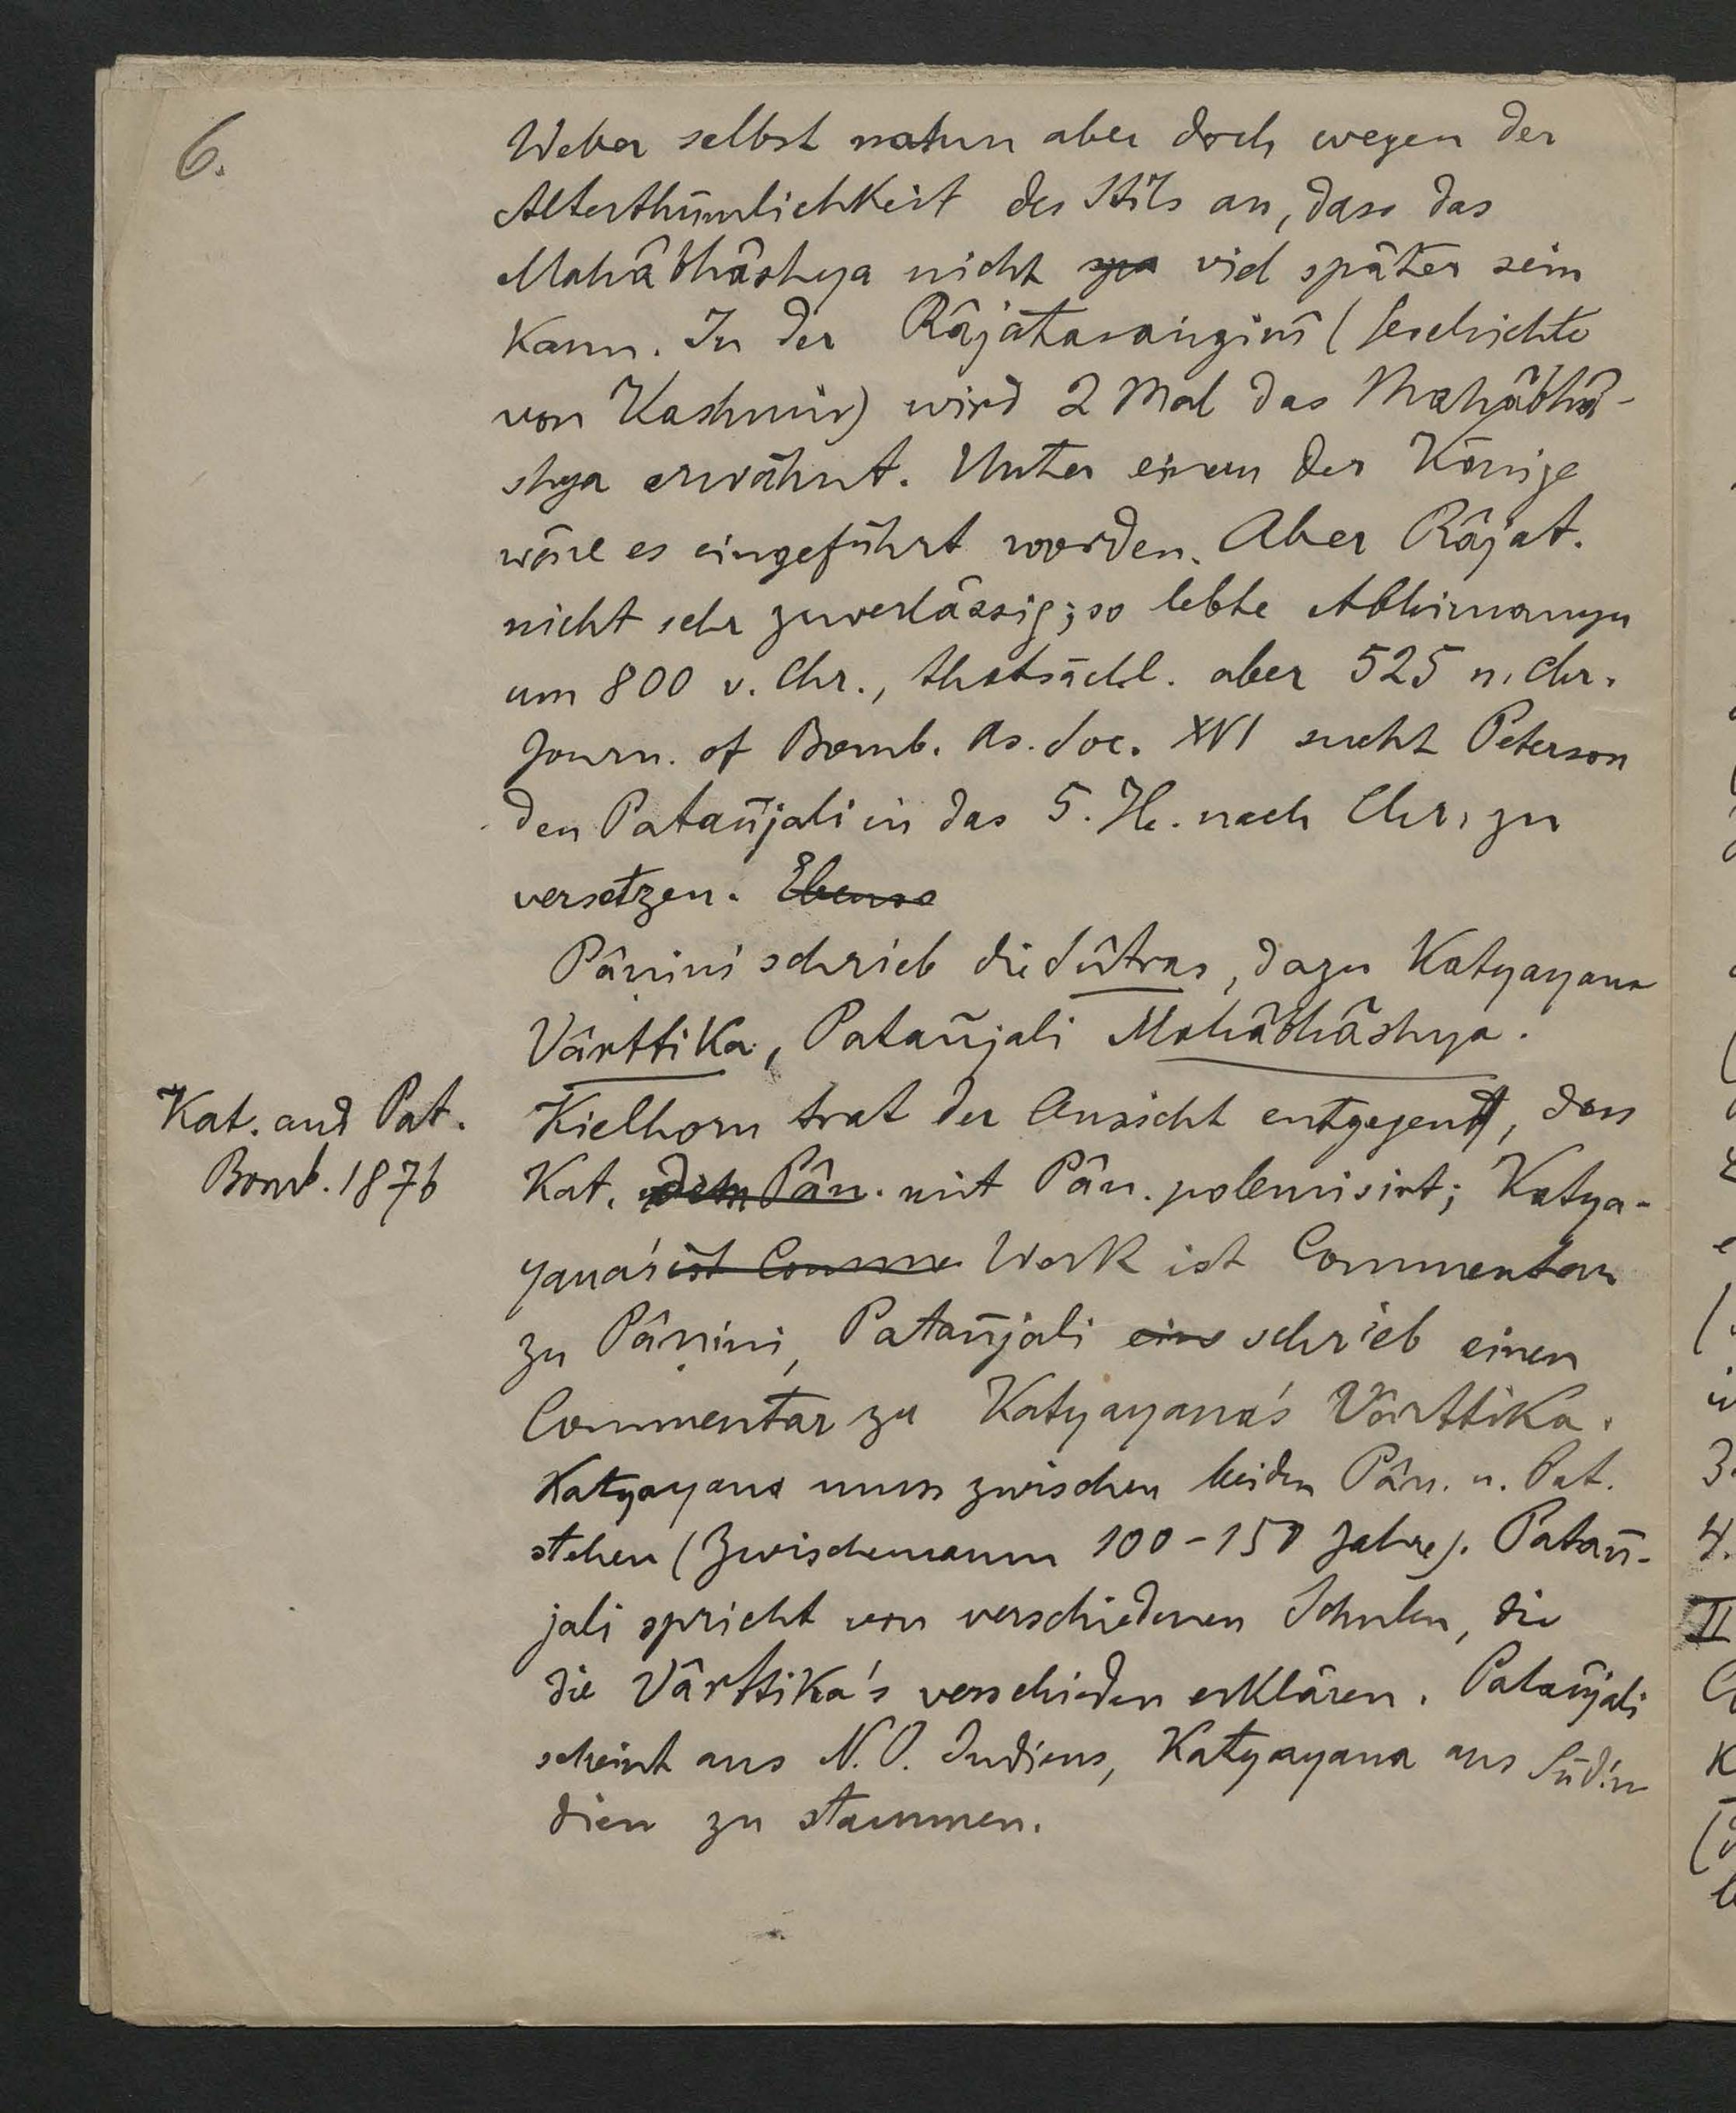 6.
Weber selbst nahm aber doch wegen der
Alterthümlichkeit des Stils an, dass das
Mahâbhâshya nicht spä viel später sein
kann. In der Râjataraṅgiṇî (Geschichte
von Kashmir) wird 2 Mal das Mahâbhâ-
shya erwähnt. Unter einem der Könige
wäre es eingeführt worden. Aber Râjat.
nicht sehr zuverlässig; so lebte Abhimanyu
um 800 v. Chr., thatsächl. aber 525 n. Chr.
Journ. of Bomb. As. Soc. XVI sucht Peterson
den Patañjali in das 5. Jh. nach Chr. zu
versetzen. Ebenso
Pâṇini schrieb die Sûtras, dazu Katyayana
Vârttika, Patañjali Mahâbhâshya.
Kat. and Pat.
Bomb. 1876
Kielhorn trat der Ansicht entgegen, dass
Kat. dem Pân. mit Pân. polemisirt; Katya-
yana's ist Comme Werk ist Commentar
zu Pâṇini, Patañjali eine schrieb einen
Commentar zu Katyayana's Vârttika.
Katyayana muss zwischen beiden Pân. u. Pat.
stehen (Zwischenraum 100-150 Jahre). Patañ-
jali spricht von verschiedenen Schulen, die
die Vârttika's verschieden erklären. Patañjali
scheint aus N.O. Indiens, Katyayana aus Südin
dien zu stammen.